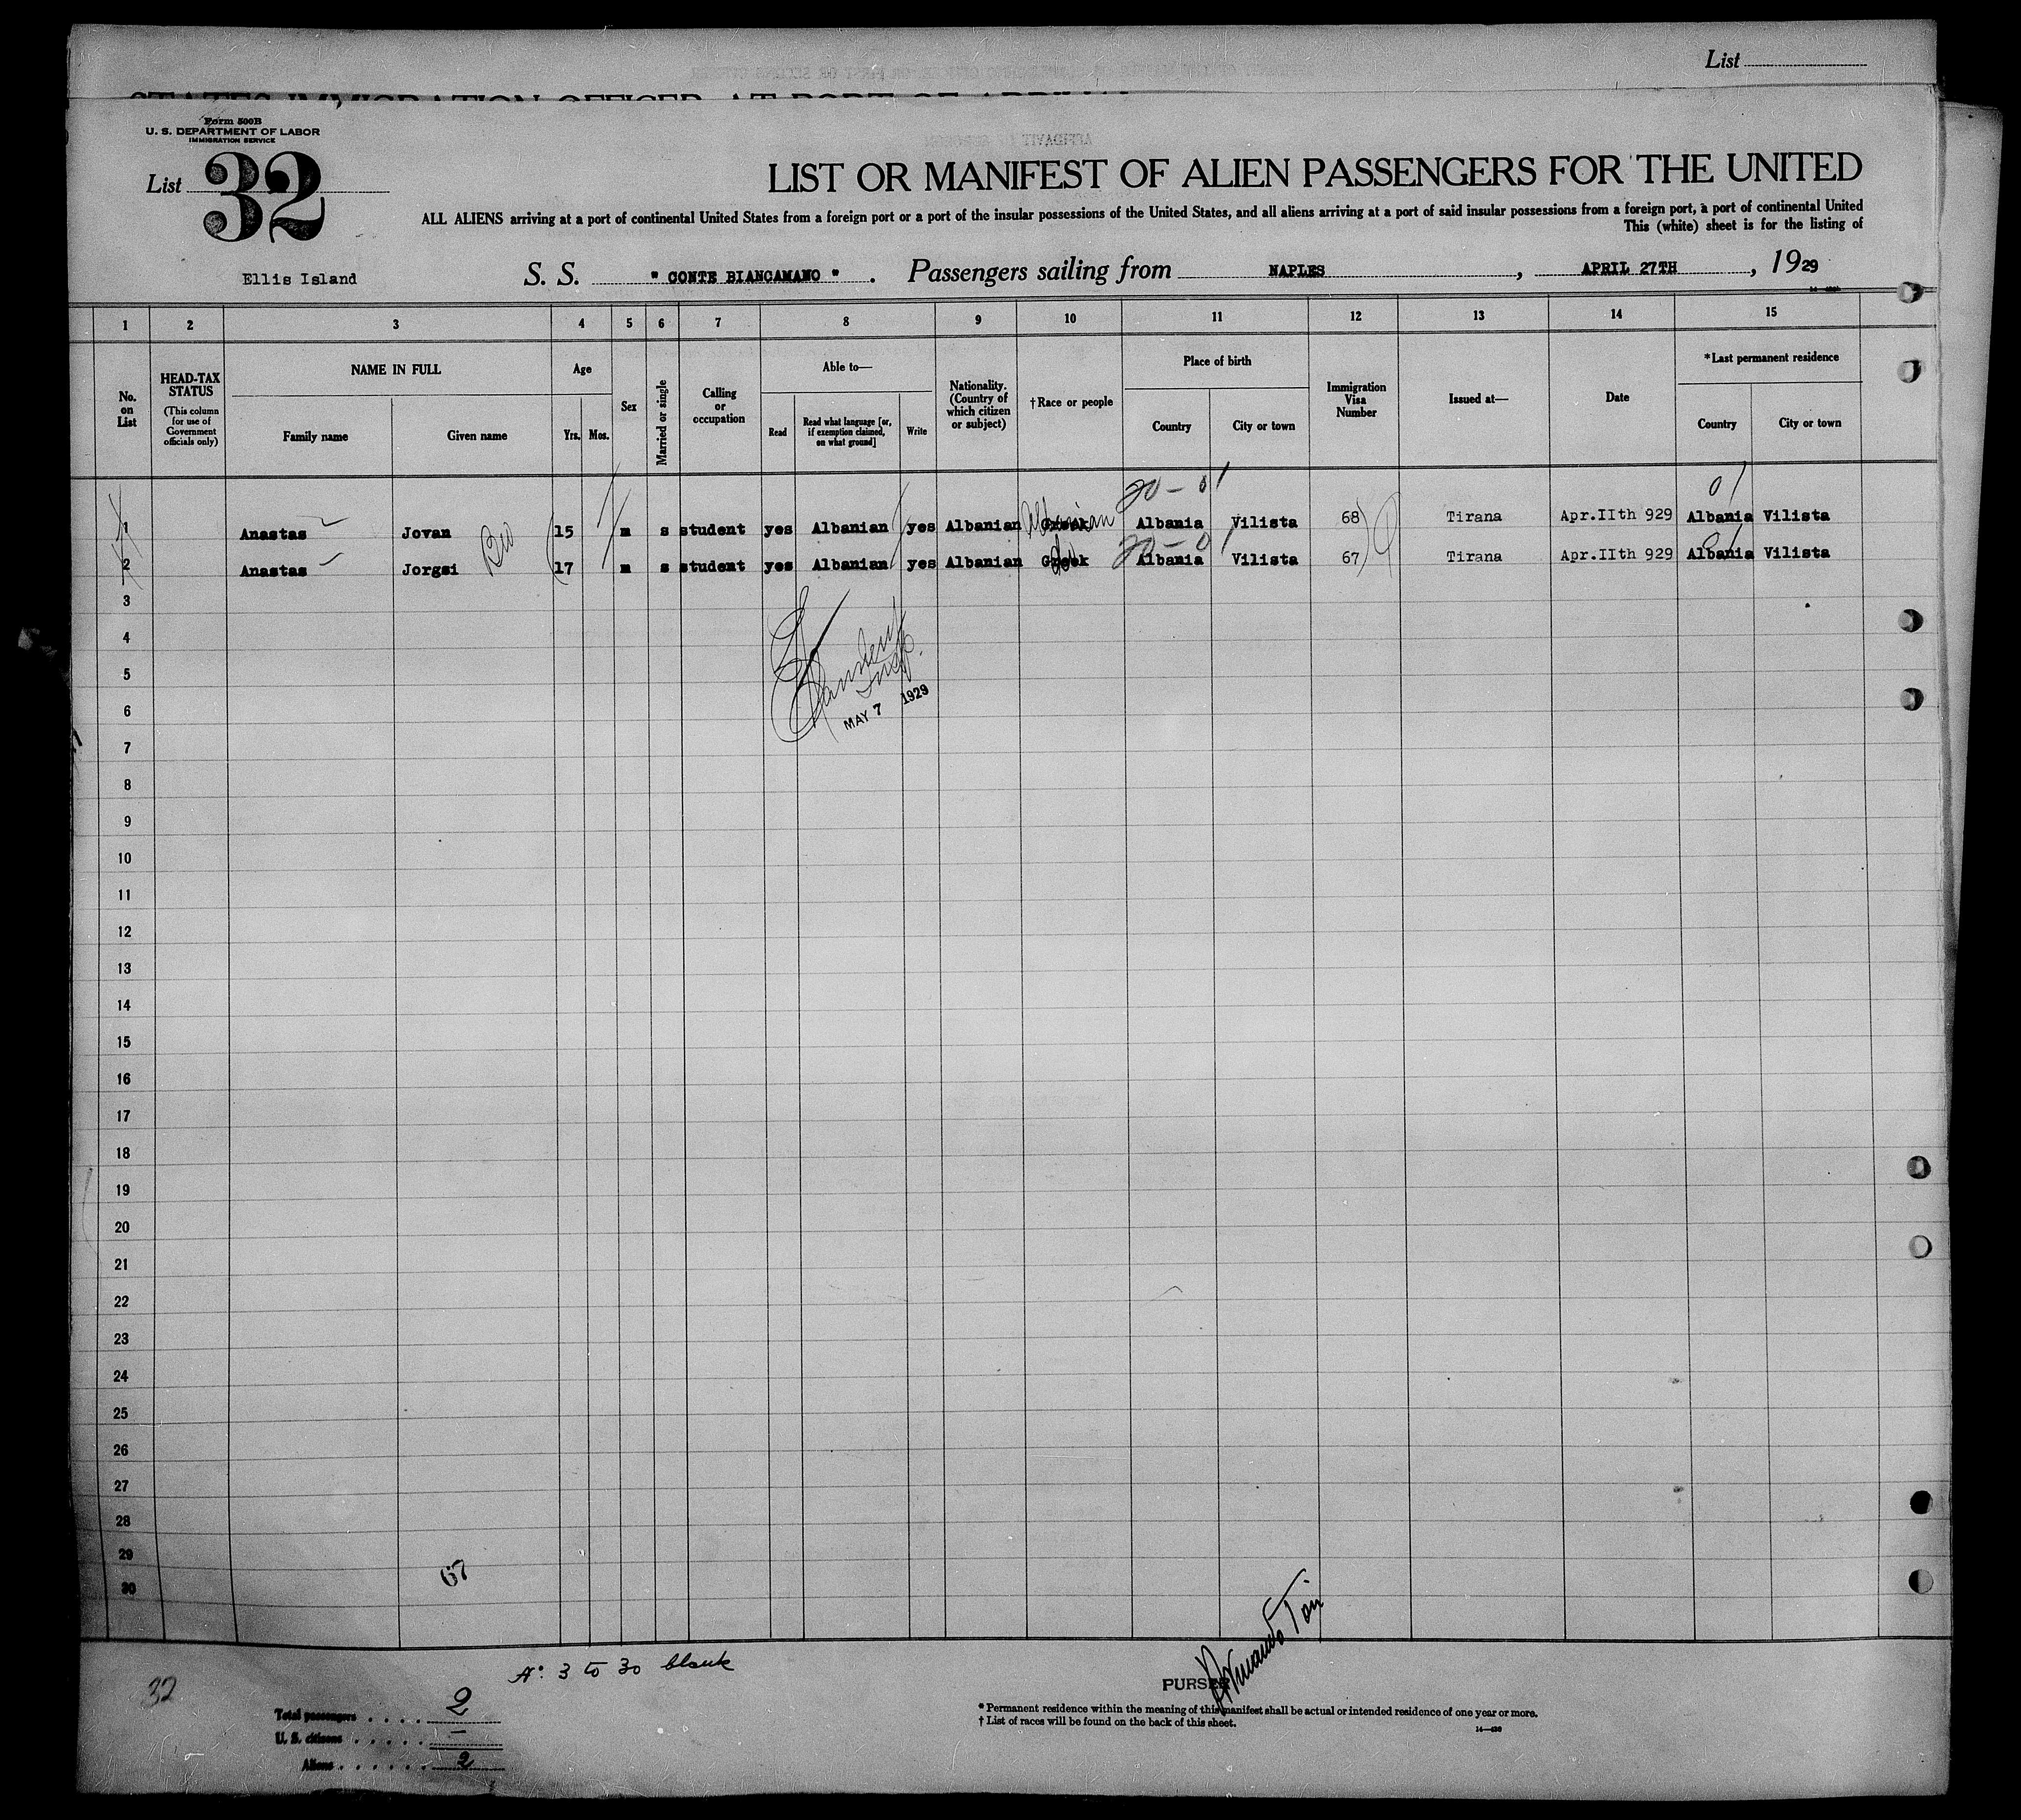 List
Form 500B
U. S. DEPARTMENT OF LABOR
IMMIGRATION SERVICE
List 32
LIST OR MANIFEST OF ALIEN PASSENGERS FOR THE UNITED
ALL ALIENS arriving at a port of continental United States from a foreign port or a port of the insular possessions of the United States, and all aliens arriving at a port of said insular possessions from a foreign port, a port of continental United
This (white) sheet is for the listing of
Ellis Island S. S. " CONTE BIANCAMANO " . Passengers sailing from NAPLES , APRIL 27TH , 1929
1 2 3 4 5 6 7 8 9 10 11 12 13 14 15
No. on List
HEAD-TAX STATUS (This column for use of Government officials only)
NAME IN FULL
Family name Given name
Age
Yrs. Mos.
Sex
Married or single
Calling or occupation
Able to—
Read Read what language [or, if exemption claimed, on what ground] Write
Nationality. (Country of which citizen or subject)
†Race or people
Place of birth
Country City or town
Immigration Visa Number
Issued at—
Date
*Last permanent residence
Country City or town
20 – 01 01
1 Anastas Jovan 15 m s student yes Albanian yes Albanian Greek Albanian Albania Vilista 68 Tirana Apr.IIth 929 Albania Vilista
20 – 01 01
2 Anastas Jorgsi 17 m s student yes Albanian yes Albanian Greek Do Albania Vilista 67 Tirana Apr.IIth 929 Albania Vilista
3
4
5
Insp.
6
MAY 7 1929
7
8
9
10
11
12
13
14
15
16
17
18
19
20
21
22
23
24
25
26
27
28
29
67
30
No 3 to 30 blank
32
PURSER
Total passengers . . . . 2
U. S. citizens . . . . . –
Aliens . . . . . . 2
* Permanent residence within the meaning of this manifest shall be actual or intended residence of one year or more.
† List of races will be found on the back of this sheet.
14—430